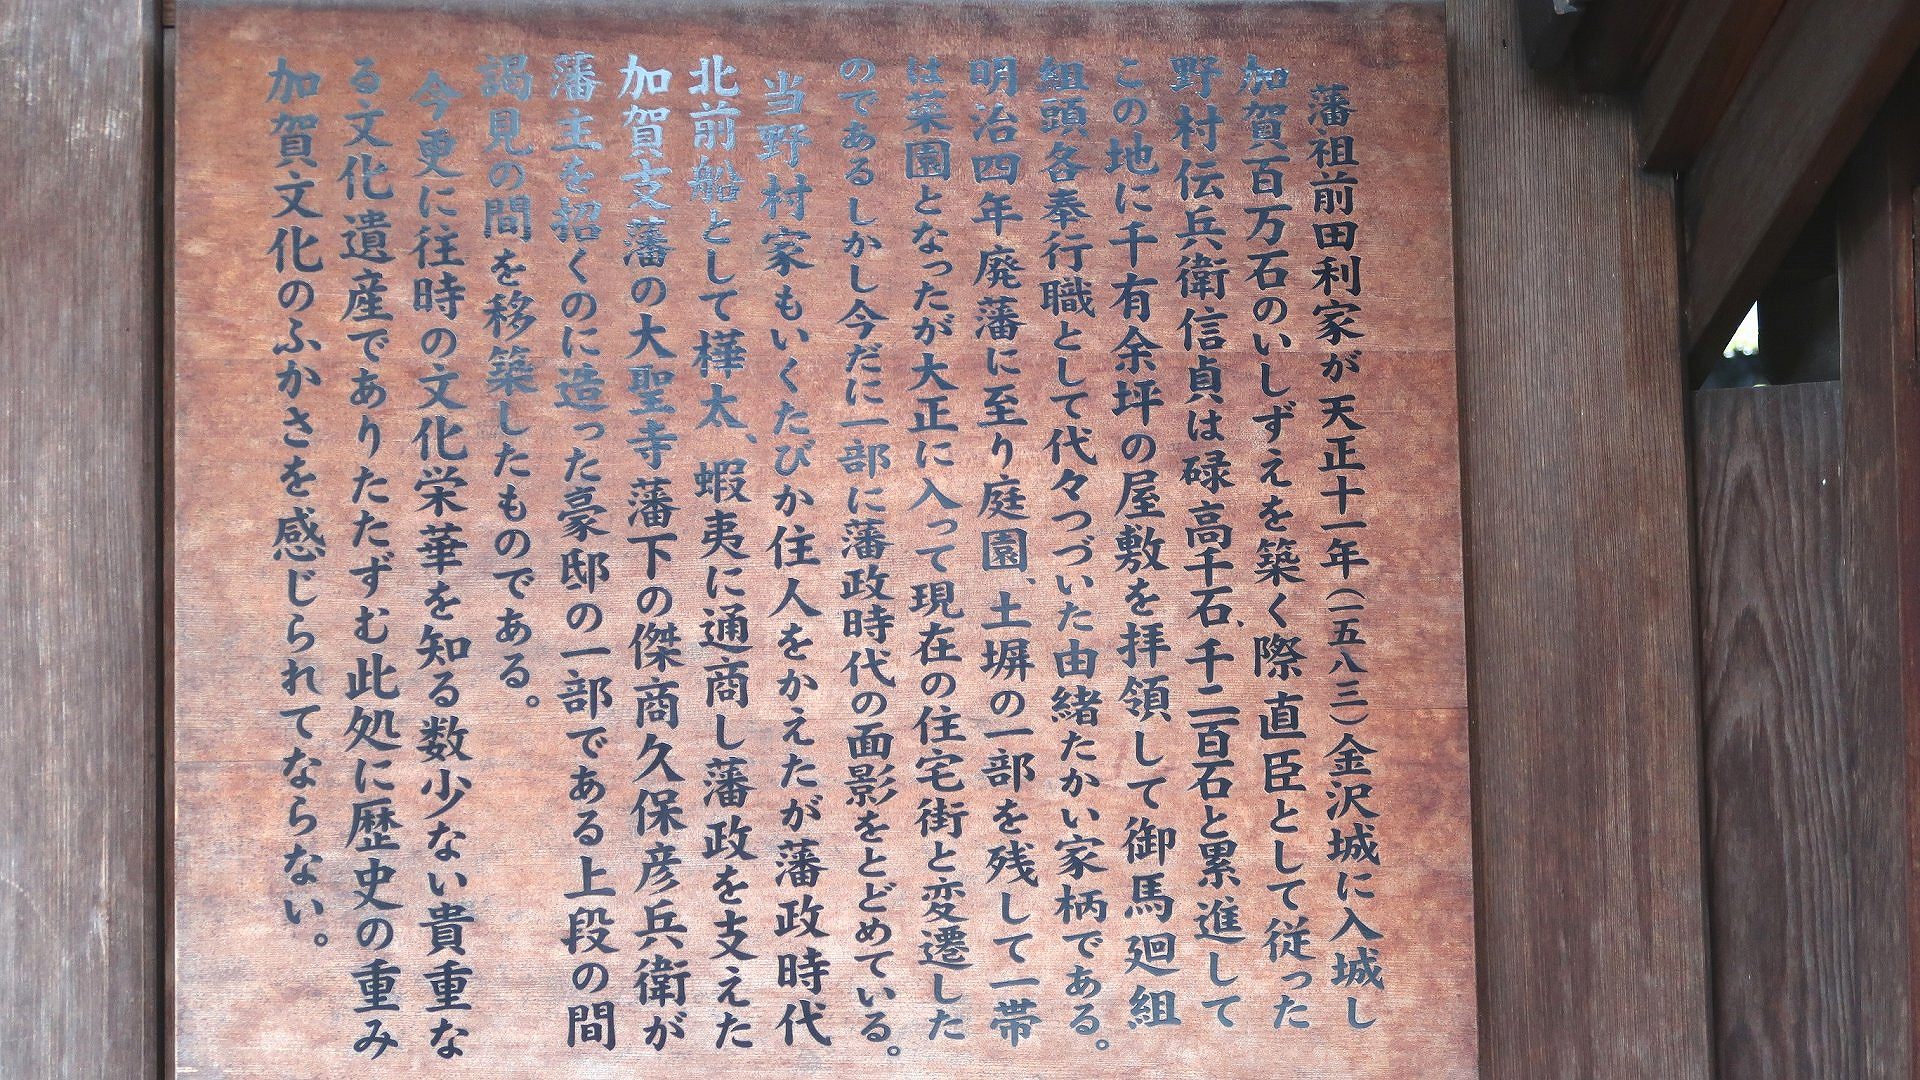 藩祖前田利家が天正十一年(一五八三)金沢城に入城し
加賀百万石のいしずえを築く際直臣として従った
野村伝兵衛信貞は碌高千石、千二百石と累進して
この地に千有余坪の屋敷を拝領して御馬廻組
組頭各奉行職として代々つづいた由緒たかい家柄である。
明治四年廃藩に至り庭園、土塀の一部を残して一帯
は菜園となったが大正に入って現在の住宅街と変遷した
のであるしかし今だに一部に藩政時代の面影をとどめている。
当野村家もいくたびか住人をかえたが藩政時代
北前船として樺太、蝦夷に通商し藩政を支えた
加賀支藩の大聖寺藩下の傑商久保彦兵衛が
藩主を招くのに造った豪邸の一部である上段の間
謁見の間を移築したものである。
今更に往時の文化栄華を知る数少ない貴重な
る文化遺産でありたたずむ此処に歴史の重み
加賀文化のふかさを感じられてならない。